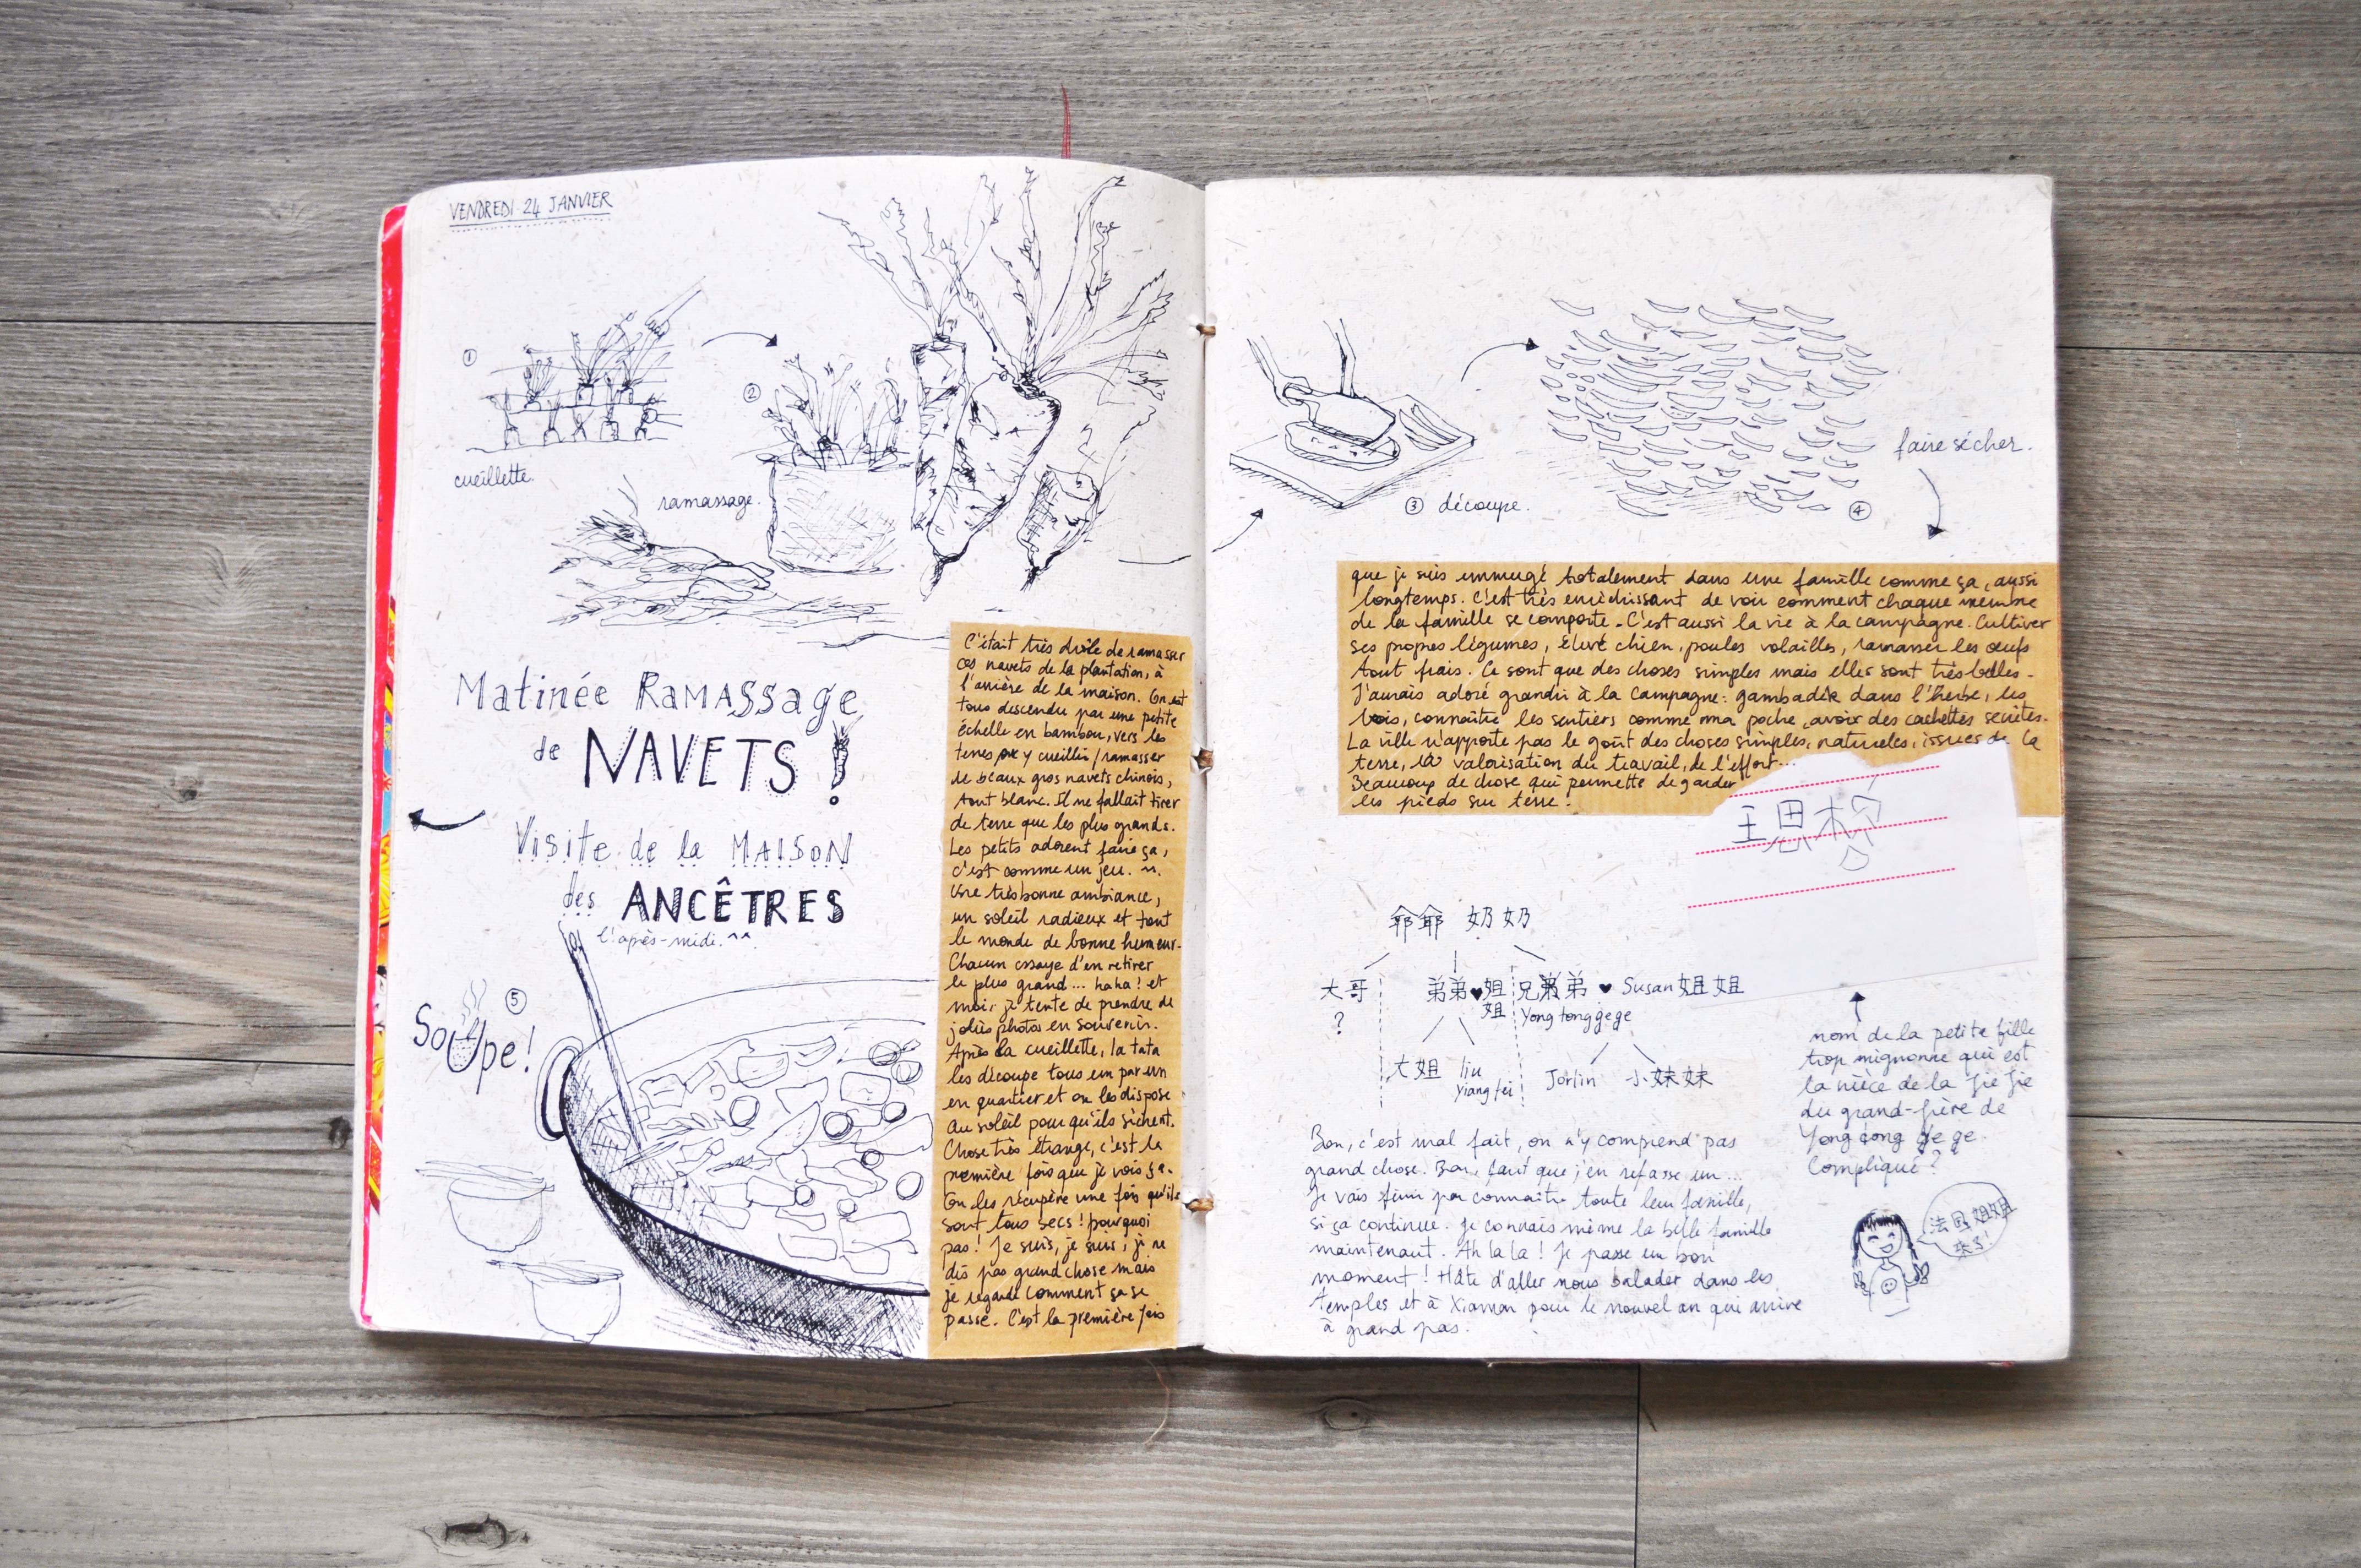 VENDREDI 24 JANVIER
①
cueillette.
②
ramassage.
Matinée Ramassage
de NAVETS !
Visite de la MAISON
des ANCÊTRES
l'après-midi. ^^
⑤
Soupe !
C'était très drôle de ramasser
ces navets de la plantation, à
l'arrière de la maison. On est
tous descendu par une petite
échelle en bambou, vers les
terres y cueillir / ramasser
de beaux gros navets chinois,
tout blanc. Il ne fallait tirer
de terre que les plus grands.
Les petits adorent faire ça,
c'est comme un jeu. ^^.
Une très bonne ambiance,
un soleil radieux et tout
le monde de bonne humeur.
Chacun essaye d'en retirer
le plus grand... haha ! et
moi, je tente de prendre de
jolies photos en souvenir.
Après la cueillette, la tata
les découpe tous un par un
en quartier et on les dispose
au soleil pour qu'ils sèchent.
Chose très étrange, c'est la
première fois que je vois ça.
On les récupère une fois qu'ils
sont tous secs ! pourquoi
pas ! Je suis, je suis, je ne
dis pas grand chose mais
je regarde comment ça se
passe. C'est la première fois
③ découpe.
④
faire sécher.
que je suis immergé totalement dans une famille comme ça, aussi
longtemps. C'est très enrichissant de voir comment chaque membre
de la famille se comporte. C'est aussi la vie à la campagne. Cultiver
ses propres légumes, élevé chien, poules volailles, ramasser les œufs
tout frais. Ce sont que des choses simples mais elles sont très belles.
J'aurais adoré grandir à la campagne : gambader dans l'herbe, les
bois, connaître les sentiers comme ma poche, avoir des cachettes secrètes.
La ville n'apporte pas le goût des choses simples, naturelles, issues de la
terre, la valorisation du travail, de l'effort...
Beaucoup de chose qui permette de garder
les pieds sur terre.
王思
爷爷 奶奶
大哥 弟弟♥姐姐 兄弟 ♥ Susan 姐姐
? Yong tong gege
大姐 liu Jorlin 小妹妹
nom de la petite fille
trop mignonne qui est
la nièce de la Jie Jie
du grand-frère de
Yong tong ge ge.
Compliqué ?
Bon, c'est mal fait, on n'y comprend pas
grand chose. Bon, faut que j'en refasse un...
Je vais finir par connaître toute leur famille,
si ça continue. Je connais même la belle famille
maintenant. Ah la la ! Je passe un bon
moment ! Hâte d'aller nous balader dans les
temples et à Xiamen pour le nouvel an qui arrive
à grand pas.
法国姐姐
来了!